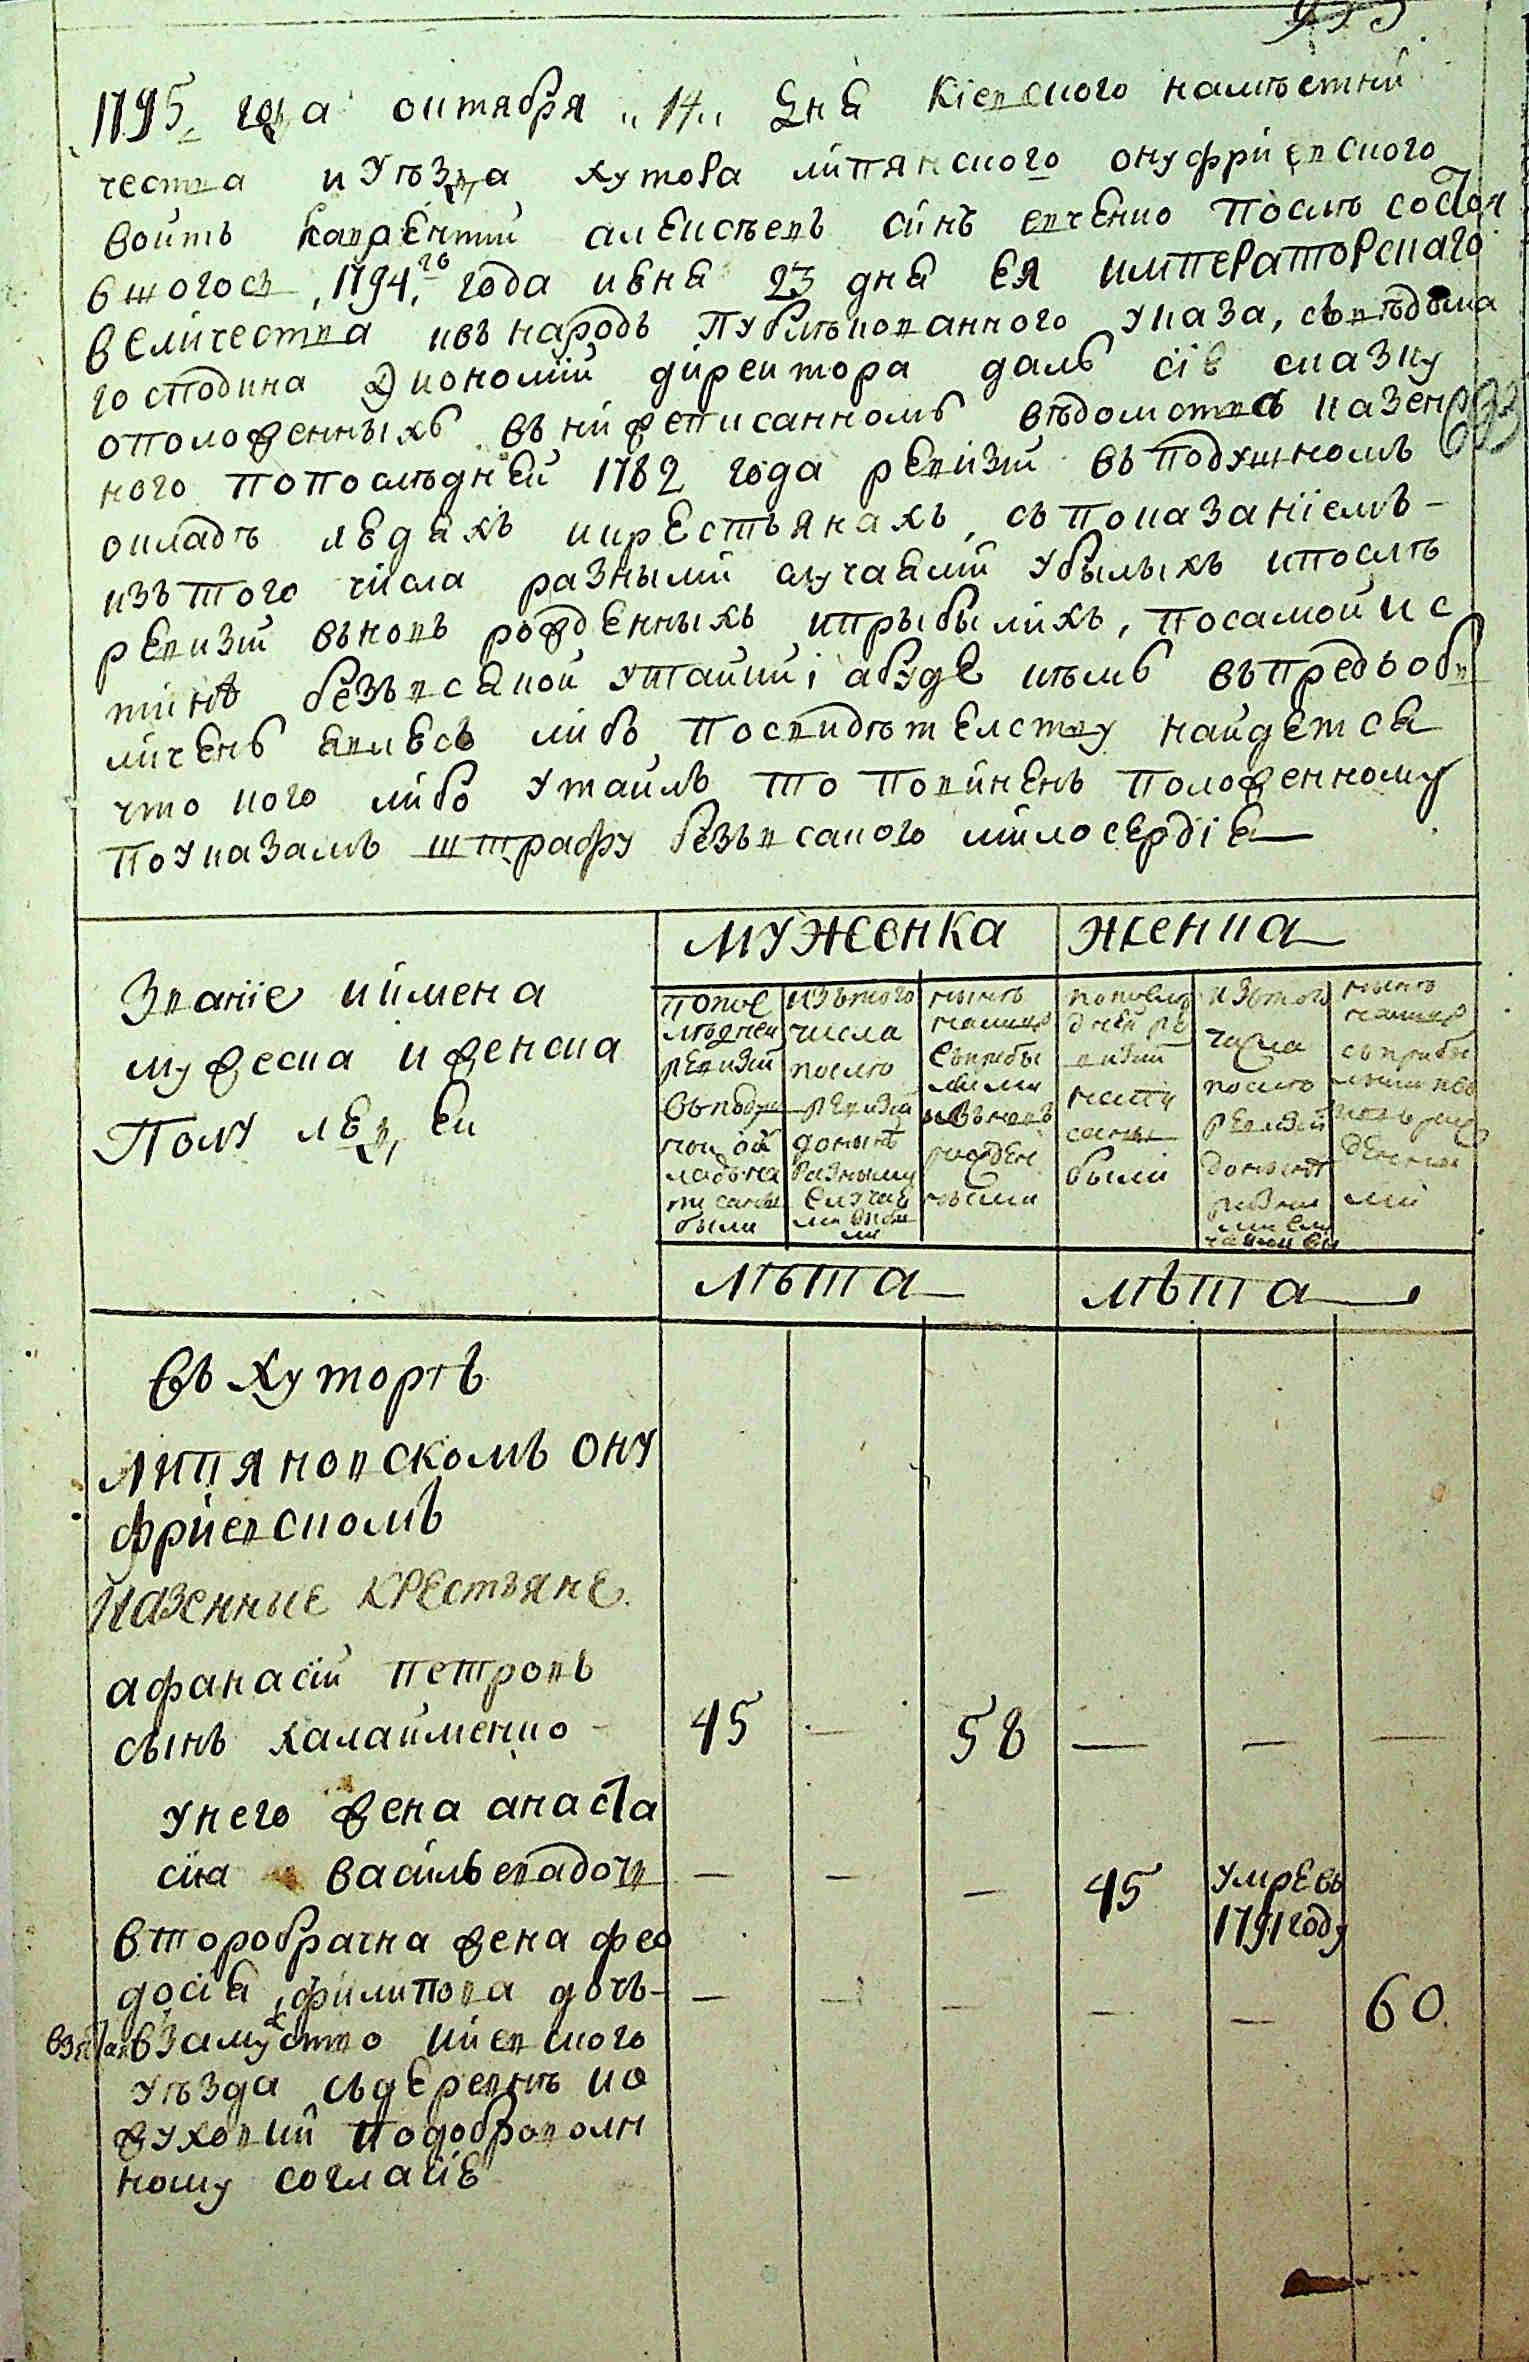 1795 года октября „14„ дня Кіевского намѣстни
чества и уѣзда хутора липянского онуфріевского
войтъ Лаврентій алексѣевъ синъ евченко послѣ состоя
вшогось 1794го года июня 23 дня ея императорскаго
величества ивъ народъ публѣкованного указа, съвѣдома
господина Економіи діректора далъ сію сказку
оположенныхъ въ нижеписанномъ вѣдомствѣ казен
ного попослѣдней 1782 года ревизіи въ подушномъ
окладѣ людяхъ икрестьянахъ, съ показаніемъ
изътого числа разными случаями убылыхъ ипослѣ
ревизіи вьновъ рожденныхъ ипрыбылихъ, посамой ис
тинѣ безъвсякой утайки; абуде кѣмъ въпредь обы
личенъ явлюсъ либъ посвидѣтелству найдется
что кого либо утаилъ то повиненъ положенному
поуказамъ штрафу безъвсакого милосердія
мужеска
женска
Званіе иимена
мужеска и женска
Полу людей
попос
лѣдней
ревизіи
въподуш
ном ок
ладѣ на
писаны
были
изътого
числа
послѣ
ревизіи
донынѣ
разными
случая
ми выбы
ли
нынѣ
налицо
съприбы
лыми
ивъновъ
рожден
ными
попослѣ
дней ре
визіи
напи
саны
были
изътого
числа
послѣ
ревизіи
донынѣ
разны
ми слу
чаями вы
нынѣ
налицо
съприбы
лыми иво
новъ рож
денны
ми
лѣта
лѣта
въ хуторѣ
липяновскомъ ону
фріевскомъ
Казенные крестьяне.
афанасій петровъ
сынъ калайменко 45 — 58 — — —
унего жена анаста
сія васильевадочь — — — 45 умре въ
1791 году
второбрачна жена фео
досія филипова дочъ — — — — — 60.
взята взамуство киевского
уѣзда съдеревнѣ ко
жуховки подоброволн
ному согласію